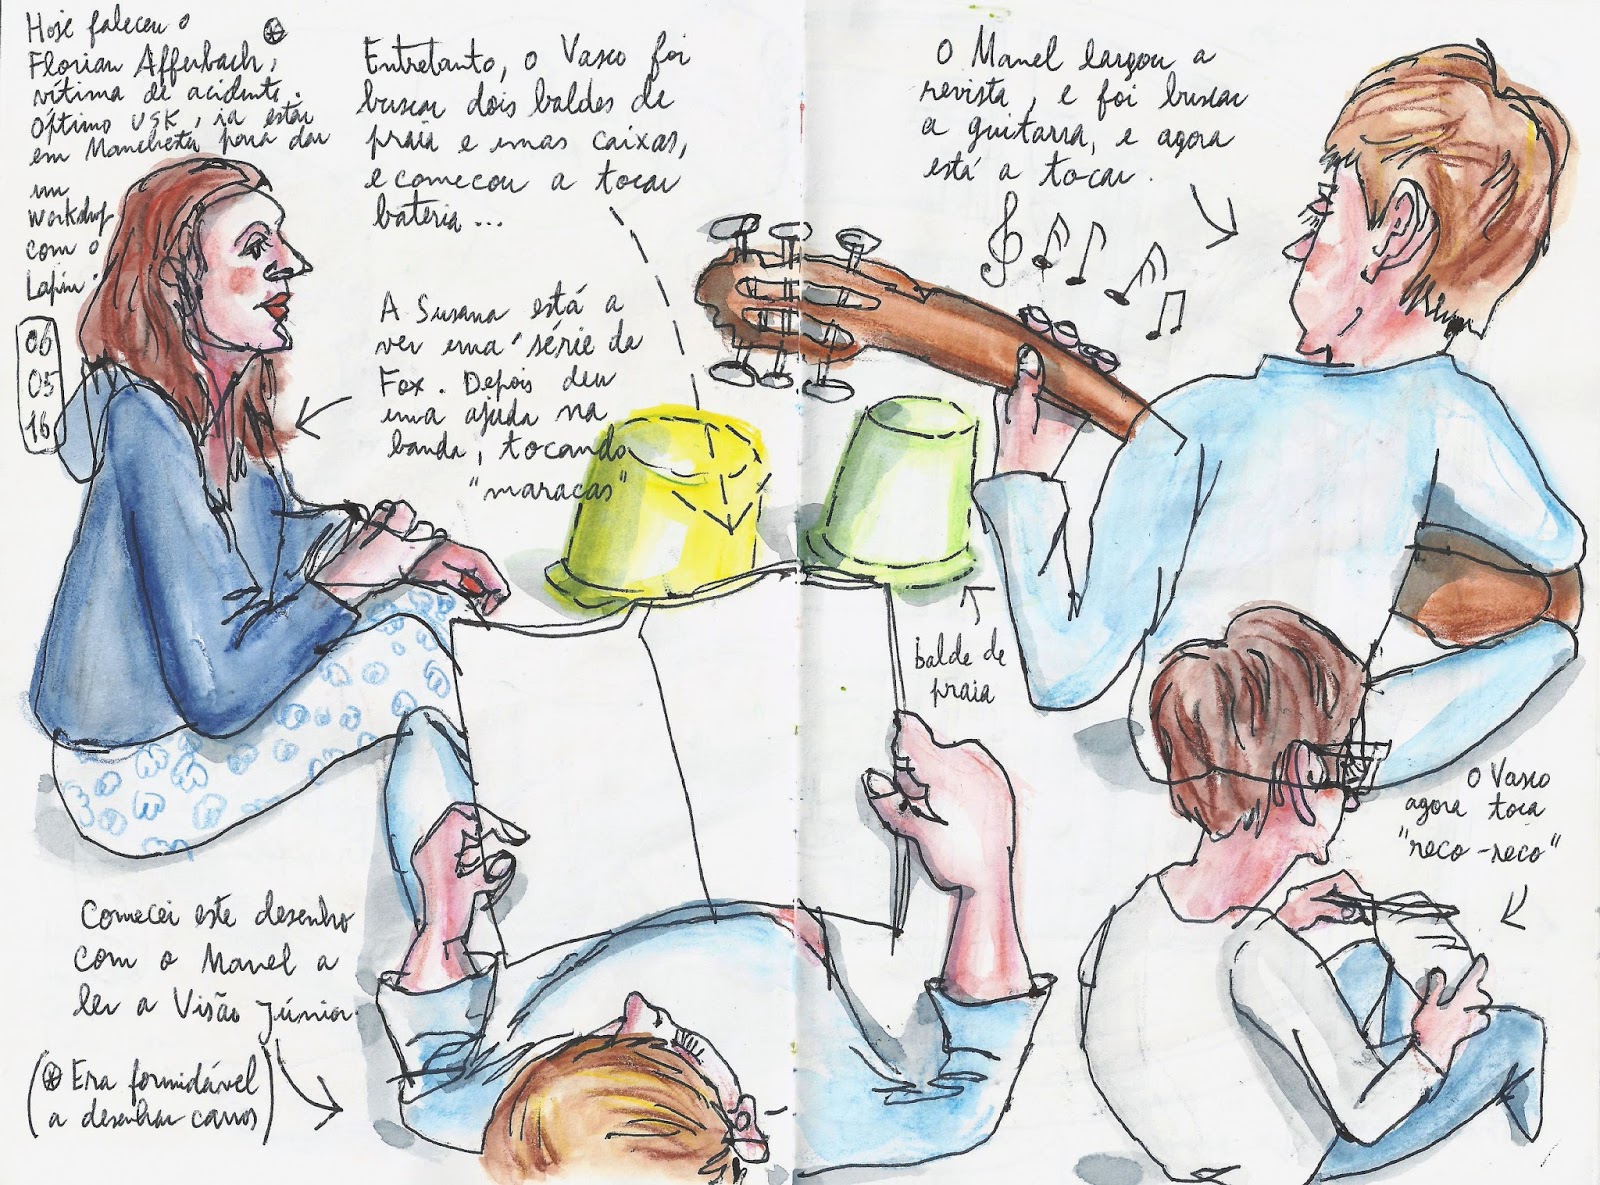 Hoje faleceu o
Florian Afferbach,
vítima de acidente.
Óptimo USK, ia estar
em Manchester para dar
um
workshop
com o
Lapin.
06
05
16
Entretanto, o Vasco foi
buscar dois baldes de
praia e umas caixas,
e começou a tocar
bateria...
A Susana está a
ver uma série da
Fox. Depois deu
uma ajuda na
banda, tocando
"maracas"
O Manel largou a
revista, e foi buscar
a guitarra, e agora
está a tocar.
balde de
praia
O Vasco
agora toca
"reco-reco"
Comecei este desenho
com o Manel a
ler a Visão Júnior.
(Era formidável
a desenhar carros)